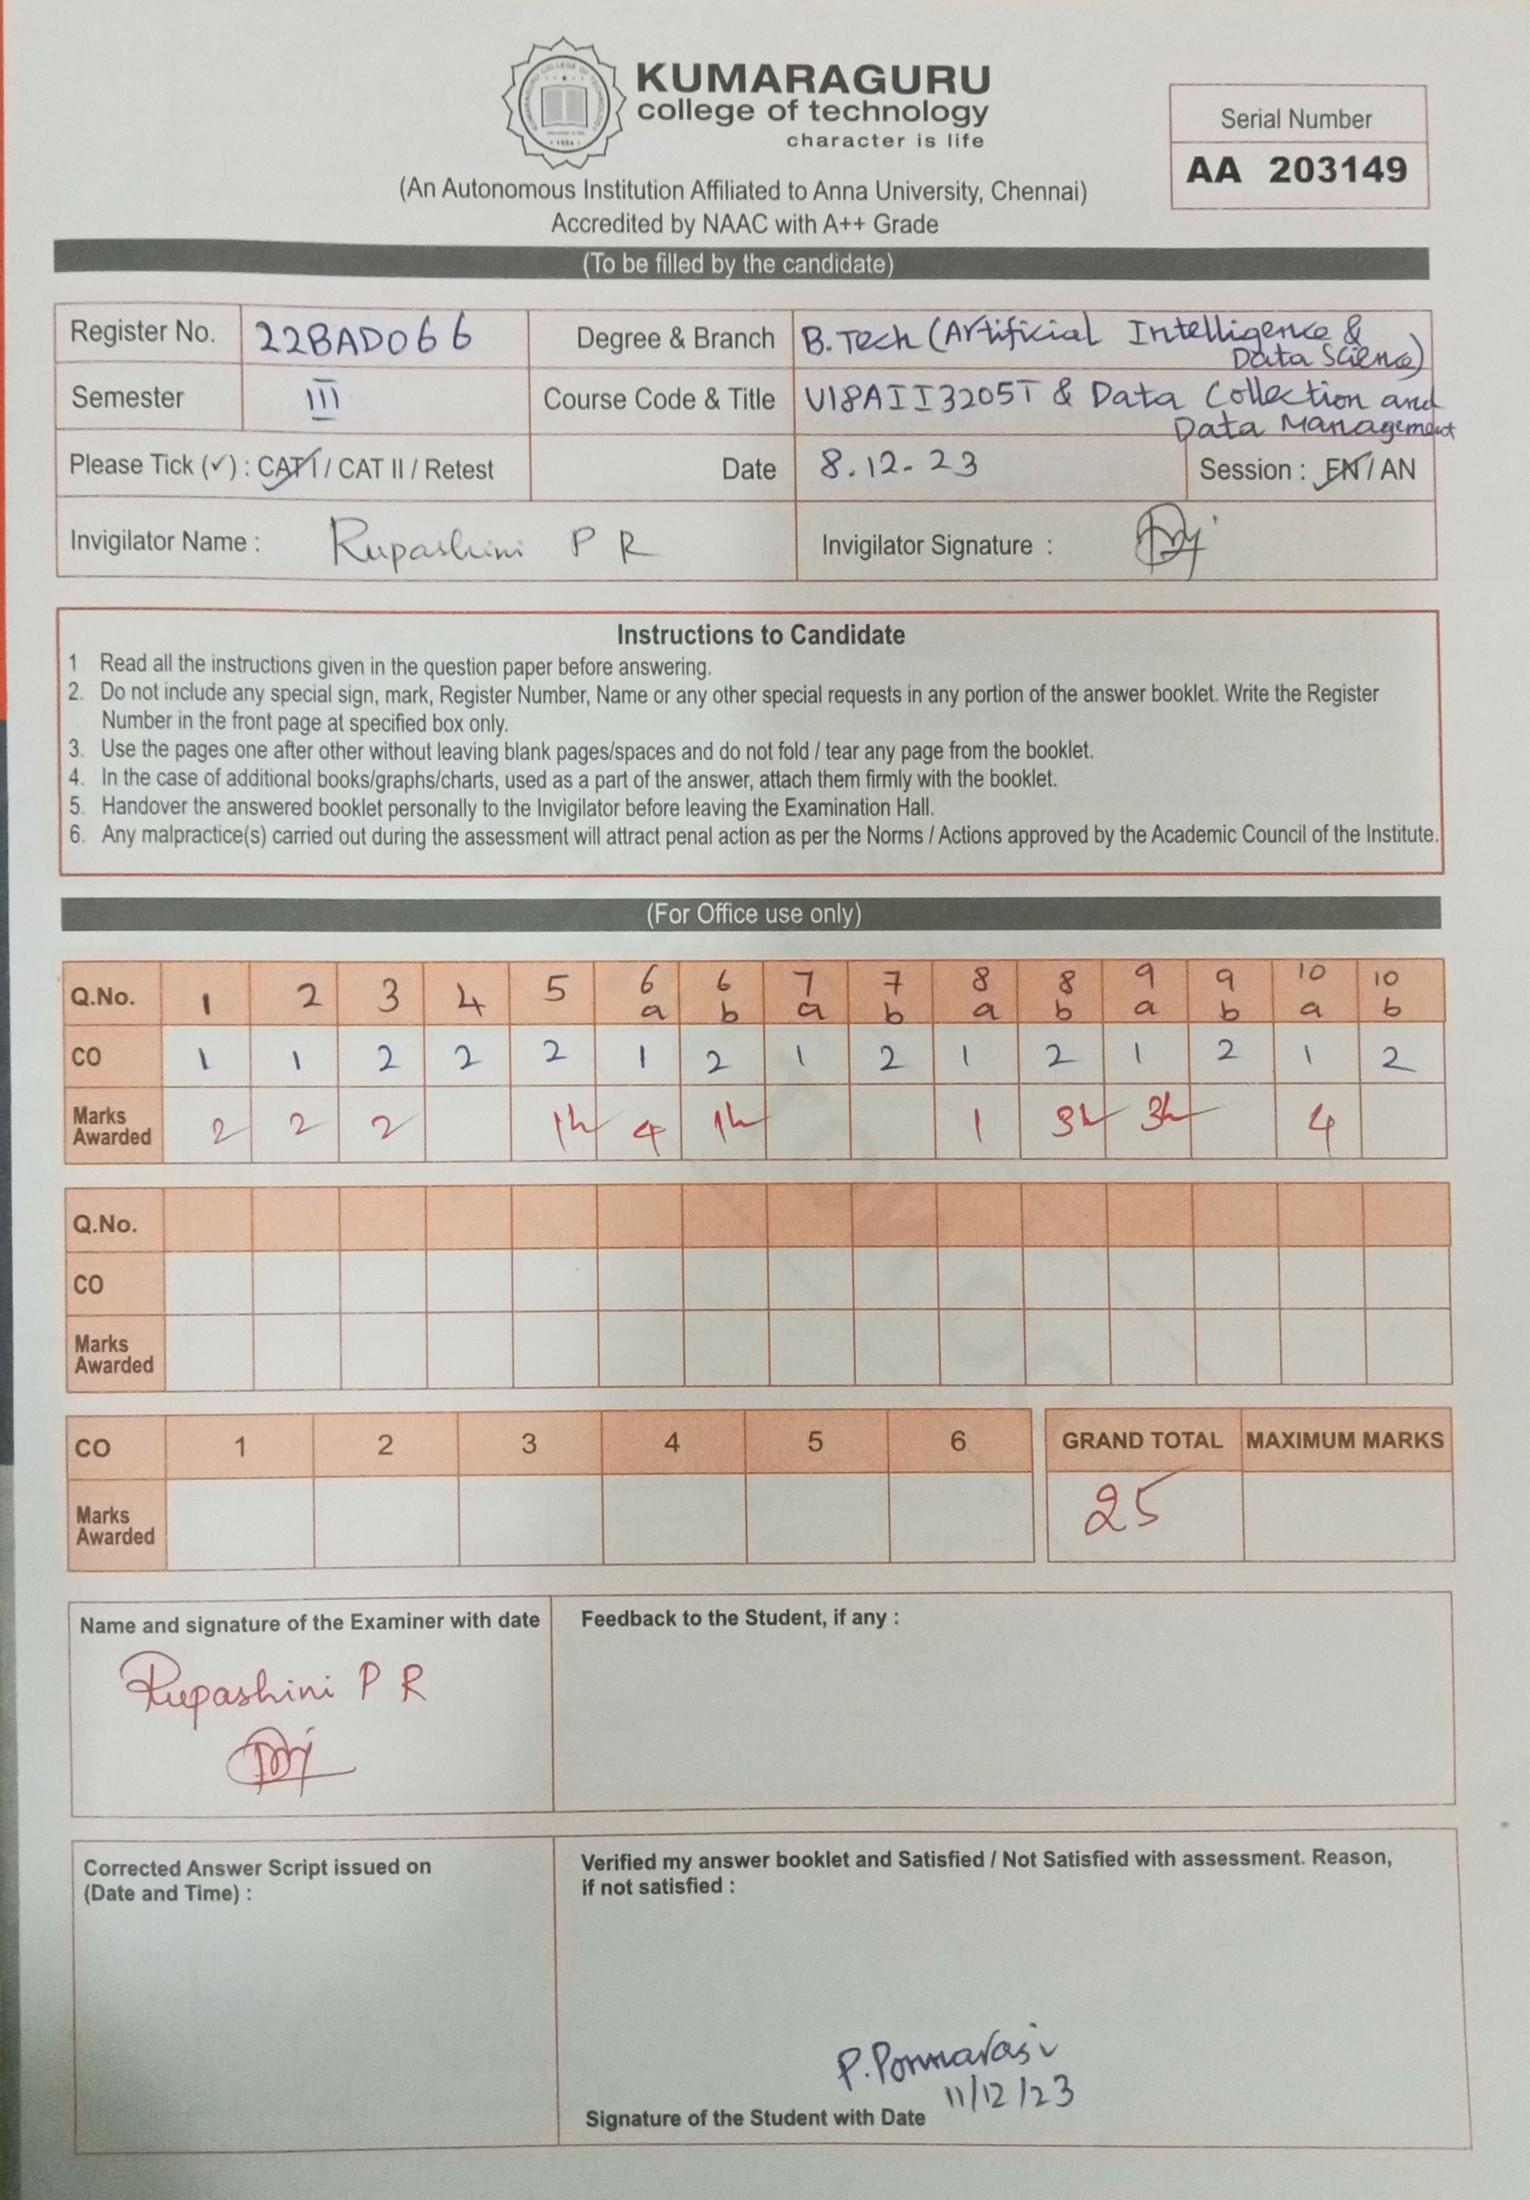 KUMARAGURU
college of technology
character is life
Serial Number
AA 203149
(An Autonomous Institution Affiliated to Anna University, Chennai)
Accredited by NAAC with A++ Grade
(To be filled by the candidate)
Register No. 22BAD066 Degree & Branch B.Tech (Artificial Intelligence & Data Science)
Semester III Course Code & Title U18AII3205T & Data Collection and Data Management
Please Tick (✓) : CAT I / CAT II / Retest Date 8.12.23 Session : FN / AN
Invigilator Name : Rupashini P R Invigilator Signature :
Instructions to Candidate
1 Read all the instructions given in the question paper before answering.
2. Do not include any special sign, mark, Register Number, Name or any other special requests in any portion of the answer booklet. Write the Register
Number in the front page at specified box only.
3. Use the pages one after other without leaving blank pages/spaces and do not fold / tear any page from the booklet.
4. In the case of additional books/graphs/charts, used as a part of the answer, attach them firmly with the booklet.
5. Handover the answered booklet personally to the Invigilator before leaving the Examination Hall.
6. Any malpractice(s) carried out during the assessment will attract penal action as per the Norms / Actions approved by the Academic Council of the Institute.
(For Office use only)
Q.No. 1 2 3 4 5 6a 6b 7a 7b 8a 8b 9a 9b 10a 10b
CO 1 1 2 2 2 1 2 1 2 1 2 1 2 1 2
Marks Awarded 2 2 2 1½ 4 1½ 1 3½ 3½ 4
Q.No.
CO
Marks Awarded
CO 1 2 3 4 5 6 GRAND TOTAL MAXIMUM MARKS
Marks Awarded 25
Name and signature of the Examiner with date
Rupashini P R
Feedback to the Student, if any :
Corrected Answer Script issued on
(Date and Time) :
Verified my answer booklet and Satisfied / Not Satisfied with assessment. Reason,
if not satisfied :
P.Ponnarasi
11/12/23
Signature of the Student with Date